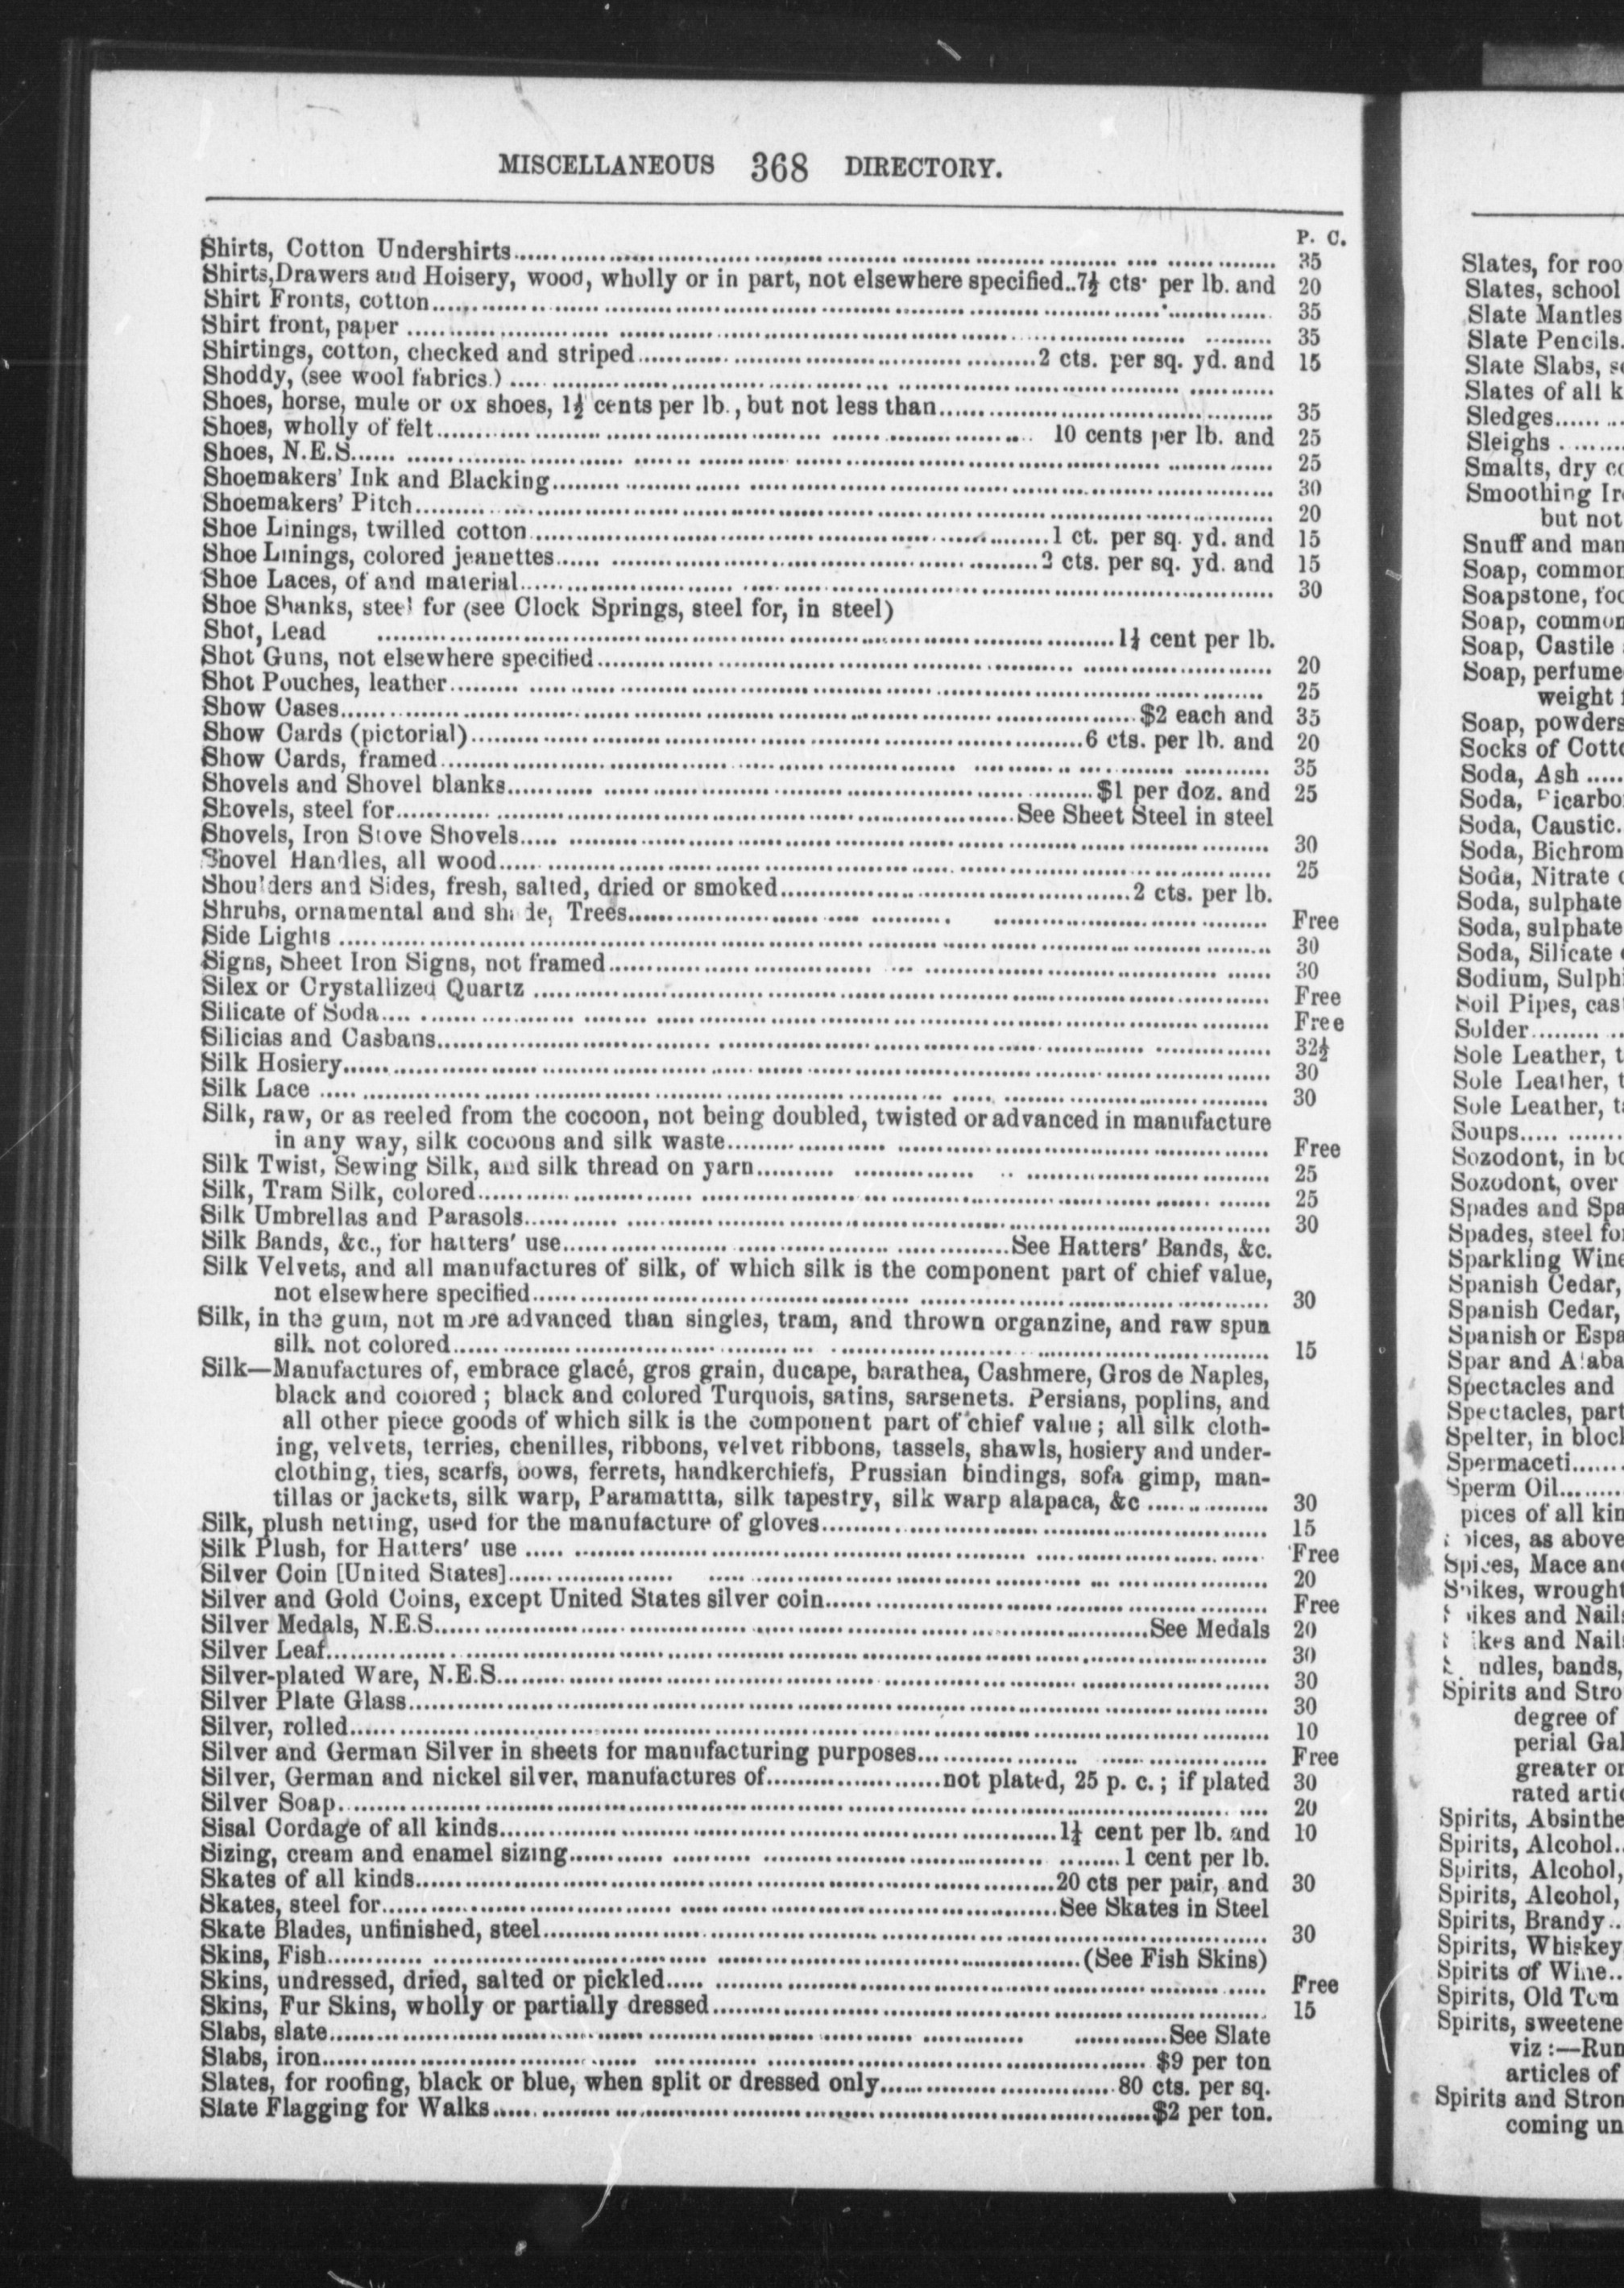 MISCELLANEOUS 368 DIRECTORY.
P. C.
Shirts, Cotton Undershirts........ 35
Shirts, Drawers and Hoisery, wood, wholly or in part, not elsewhere specified..7½ cts. per lb. and 20
Shirt Fronts, cotton........ 35
Shirt front, paper ........ 35
Shirtings, cotton, checked and striped........2 cts. per sq. yd. and 15
Shoddy, (see wool fabrics.) ........
Shoes, horse, mule or ox shoes, 1½ cents per lb., but not less than........ 35
Shoes, wholly of felt........ 10 cents per lb. and 25
Shoes, N.E.S........ 25
Shoemakers' Ink and Blacking........ 30
Shoemakers' Pitch........ 20
Shoe Linings, twilled cotton........1 ct. per sq. yd. and 15
Shoe Linings, colored jeanettes........2 cts. per sq. yd. and 15
Shoe Laces, of and material........ 30
Shoe Shanks, steel for (see Clock Springs, steel for, in steel)
Shot, Lead ........ cent per lb.
Shot Guns, not elsewhere specified........ 20
Shot Pouches, leather........ 25
Show Cases........$2 each and 35
Show Cards (pictorial)........6 cts. per lb. and 20
Show Cards, framed........ 35
Shovels and Shovel blanks........$1 per doz. and 25
Shovels, steel for........See Sheet Steel in steel
Shovels, Iron Stove Shovels........ 30
Shovel Handles, all wood........ 25
Shoulders and Sides, fresh, salted, dried or smoked........2 cts. per lb.
Shrubs, ornamental and shade, Trees........ Free
Side Lights ........ 30
Signs, Sheet Iron Signs, not framed........ 30
Silex or Crystallized Quartz ........ Free
Silicate of Soda........ Free
Silicias and Casbans........ 32½
Silk Hosiery........ 30
Silk Lace ........ 30
Silk, raw, or as reeled from the cocoon, not being doubled, twisted or advanced in manufacture
in any way, silk cocoons and silk waste........ Free
Silk Twist, Sewing Silk, and silk thread on yarn........ 25
Silk, Tram Silk, colored........ 25
Silk Umbrellas and Parasols........ 30
Silk Bands, &c., for hatters' use........See Hatters' Bands, &c.
Silk Velvets, and all manufactures of silk, of which silk is the component part of chief value,
not elsewhere specified........ 30
Silk, in the gum, not more advanced than singles, tram, and thrown organzine, and raw spun
silk not colored........ 15
Silk—Manufactures of, embrace glacé, gros grain, ducape, barathea, Cashmere, Gros de Naples,
black and colored ; black and colored Turquois, satins, sarsenets. Persians, poplins, and
all other piece goods of which silk is the component part of chief value ; all silk cloth-
ing, velvets, terries, chenilles, ribbons, velvet ribbons, tassels, shawls, hosiery and under-
clothing, ties, scarfs, bows, ferrets, handkerchiefs, Prussian bindings, sofa gimp, man-
tillas or jackets, silk warp, Paramattta, silk tapestry, silk warp alapaca, &c ........ 30
Silk, plush netting, used for the manufacture of gloves........ 15
Silk Plush, for Hatters' use ........ Free
Silver Coin [United States]........ 20
Silver and Gold Coins, except United States silver coin........ Free
Silver Medals, N.E.S........See Medals 20
Silver Leaf........ 30
Silver-plated Ware, N.E.S........ 30
Silver Plate Glass........ 30
Silver, rolled........ 10
Silver and German Silver in sheets for manufacturing purposes........ Free
Silver, German and nickel silver, manufactures of........not plated, 25 p. c. ; if plated 30
Silver Soap........ 20
Sisal Cordage of all kinds........ cent per lb. and 10
Sizing, cream and enamel sizing........1 cent per lb.
Skates of all kinds........20 cts per pair, and 30
Skates, steel for........See Skates in Steel
Skate Blades, unfinished, steel........ 30
Skins, Fish........(See Fish Skins)
Skins, undressed, dried, salted or pickled........ Free
Skins, Fur Skins, wholly or partially dressed........ 15
Slabs, slate........See Slate
Slabs, iron........ $9 per ton
Slates, for roofing, black or blue, when split or dressed only........80 cts. per sq.
Slate Flagging for Walks........$2 per ton.
Slates, for roo
Slates, school
Slate Mantles
Slate Pencils.
Slate Slabs,
Slates of all k
Sledges......
Sleighs ......
Smalts, dry co
Smoothing Ir
but not
Snuff and man
Soap, common
Soapstone, foo
Soap, common
Soap, Castile
Soap, perfume
weight
Soap, powders
Socks of Cotto
Soda, Ash .....
Soda, Bicarbo
Soda, Caustic.
Soda, Bichrom
Soda, Nitrate
Soda, sulphate
Soda, sulphate
Soda, Silicate
Sodium, Sulph
Soil Pipes, cas
Solder.........
Sole Leather, t
Sole Leather, t
Sole Leather, t
Soups.....
Sozodont, in bo
Sozodont, over
Spades and Spa
Spades, steel fo
Sparkling Wine
Spanish Cedar,
Spanish Cedar,
Spanish or Espa
Spar and Alaba
Spectacles and
Spectacles, part
Spelter, in block
Spermaceti......
Sperm Oil.......
pices of all kin
ices, as above
Spices, Mace and
Spikes, wrought
ikes and Nail
kes and Nail
ndles, bands,
Spirits and Stro
degree of
perial Gal
greater or
rated artic
Spirits, Absinthe
Spirits, Alcohol..
Spirits, Alcohol,
Spirits, Alcohol,
Spirits, Brandy..
Spirits, Whiskey
Spirits of Wine..
Spirits, Old Tom
Spirits, sweetene
viz :—Run
articles of
Spirits and Stron
coming un